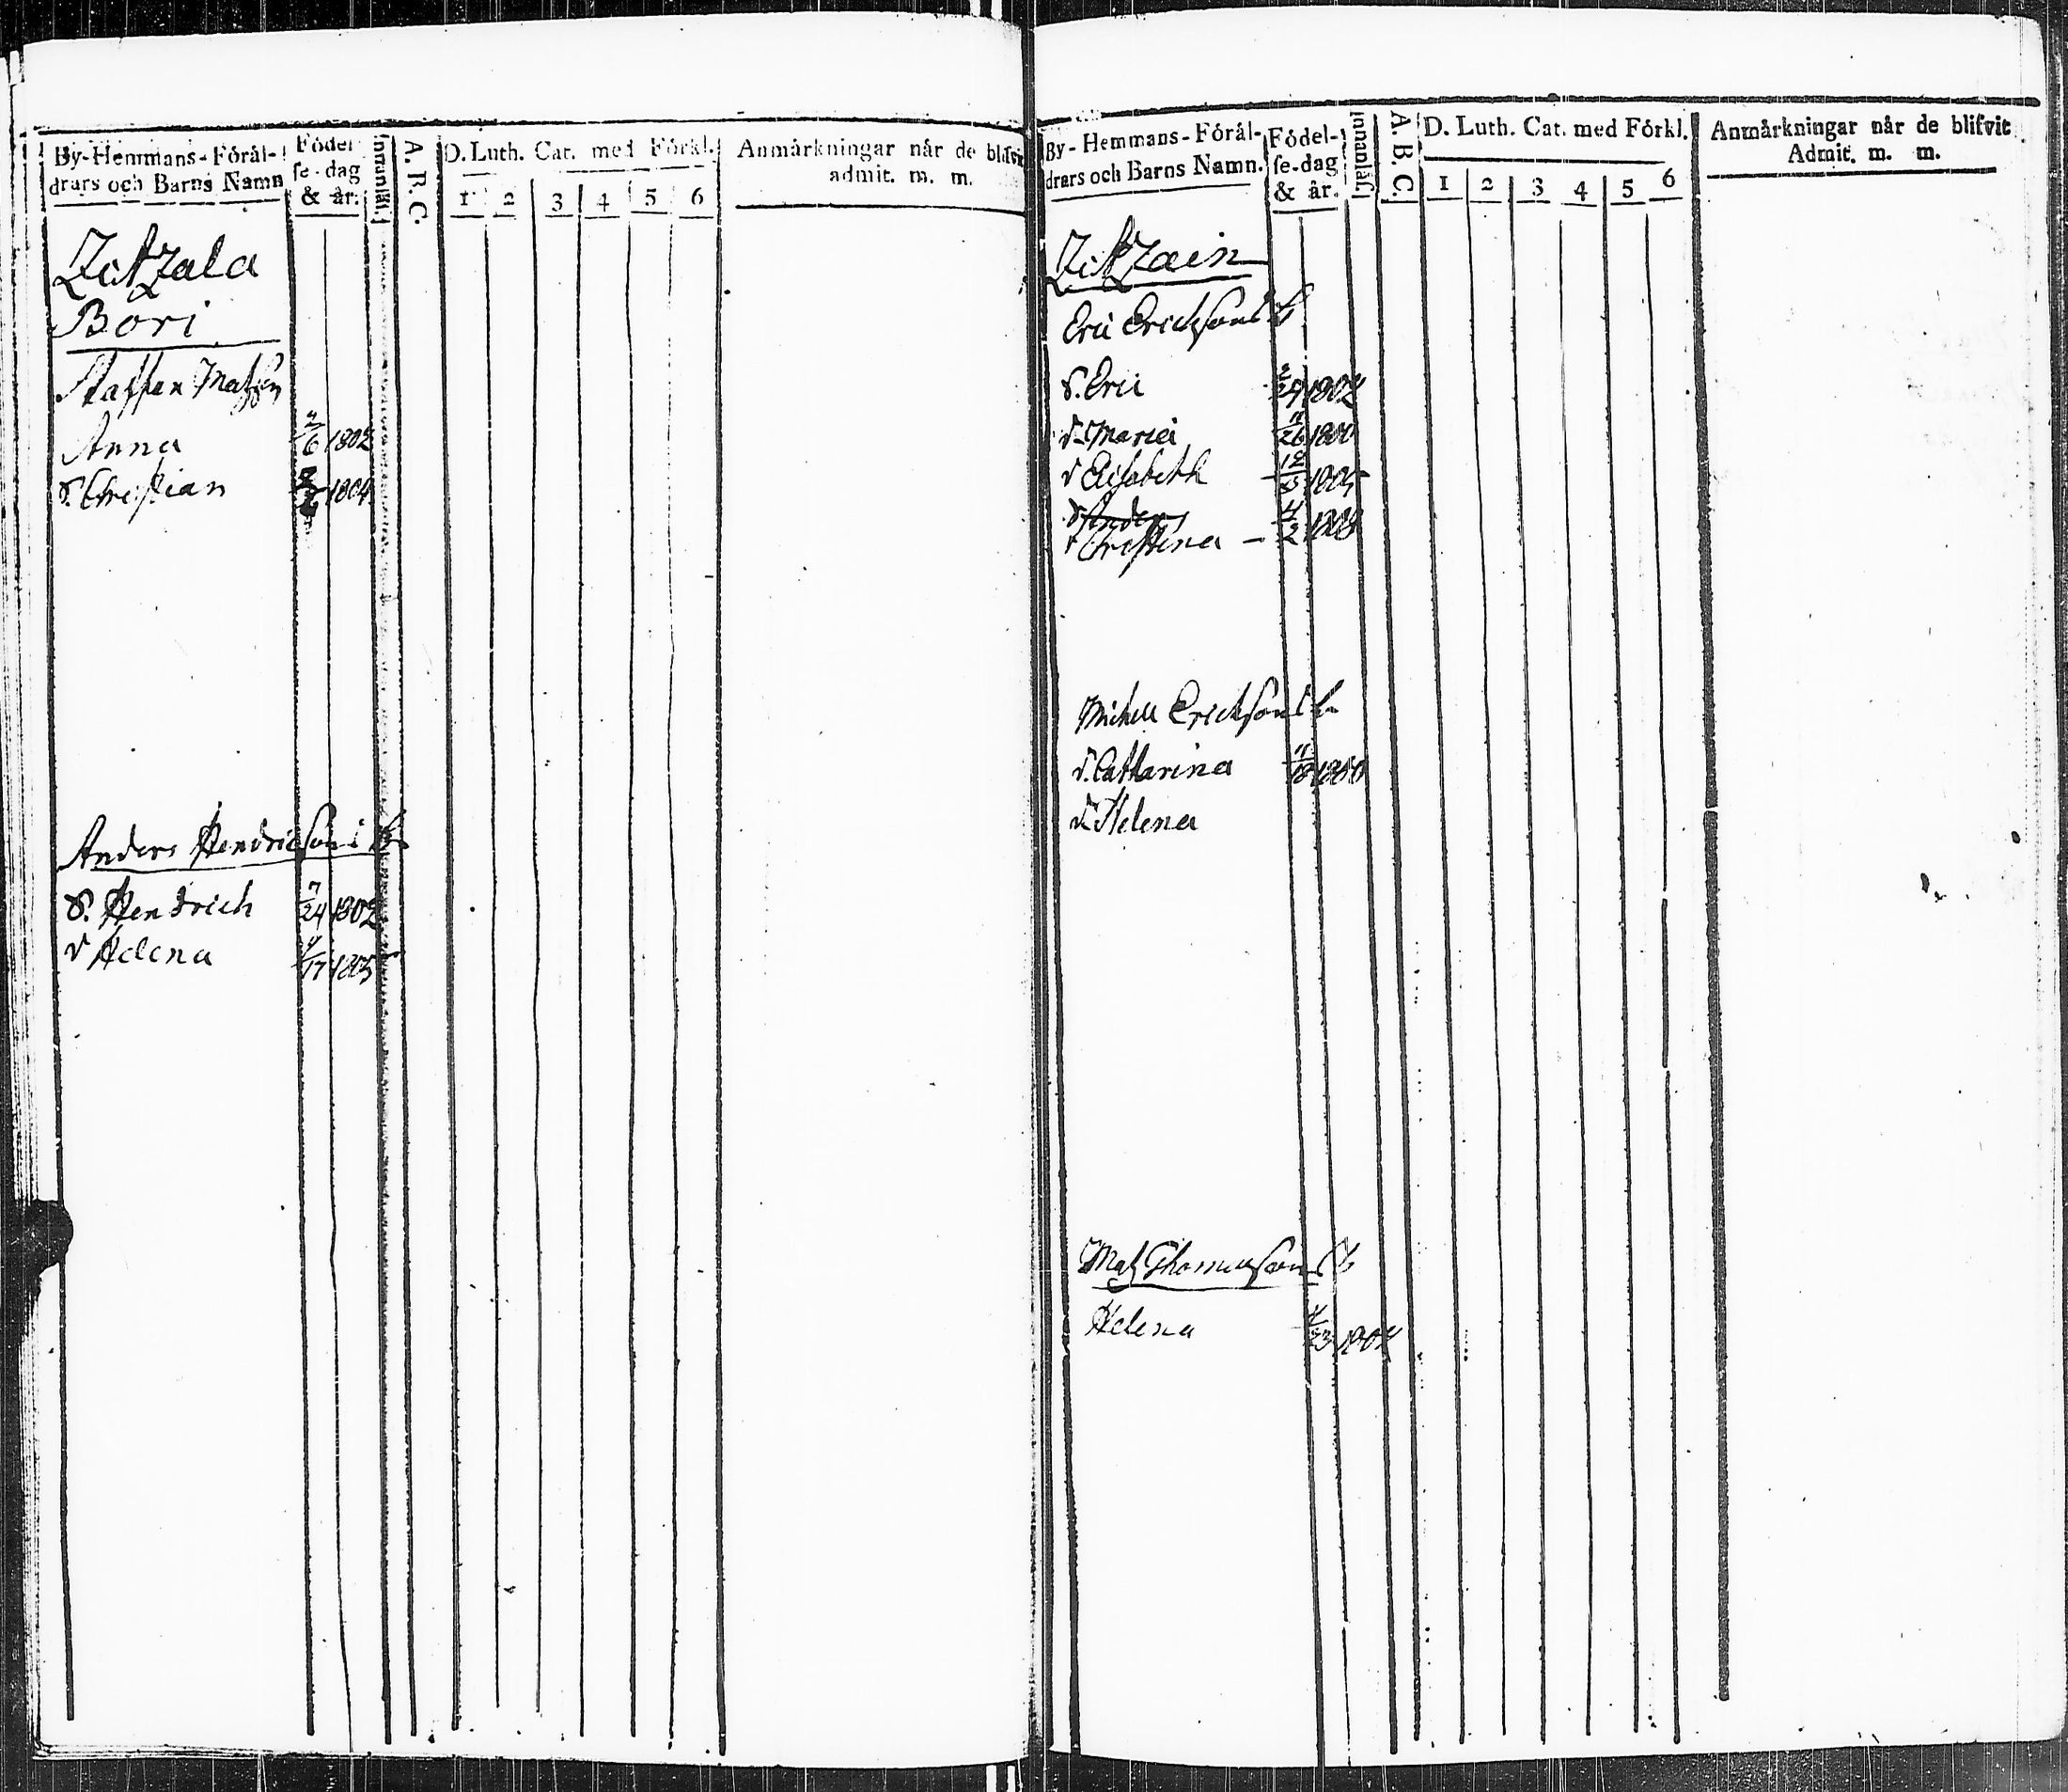 By-Hemmans-Förål-
drars och Barns Namn
Födel
se-dag
& år.
Innanläs.
A. B. C.
D. Luth. Cat. med Förkl.
1 2 3 4 5 6
Anmårkningar når de blifvit
admit. m. m.
Bori
Staffan Matsson
Anna 6 1802
S. Christian 1804
Anders Hendricsons
S. Hendrich 7/24 1802
d Helena 17 1805
By-Hemmans-Förål-
drars och Barns Namn.
Födel-
se-dag
& år.
Innanläs.
A. B. C.
D. Luth. Cat. med Förkl.
1 2 3 4 5 6
Anmårkningar når de blifvit
Admit. m. m.
Eric Ericksons
S. Eric 1802
d. Maria 11/26 1800
d Elisabeth 12 1805
S Anders
d Christina - 4/2 1808
Michell Ericksons
d. Catharina 11/18 1800
d. Helena
Mats Thomassons
Helena 23 1802